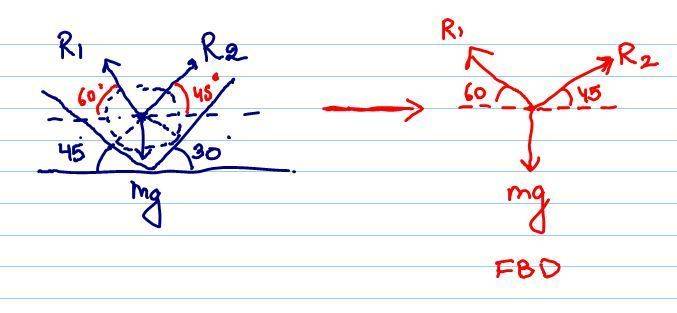 R1 R2
60° 45°
45 30
mg
R1
R2
60 45
mg
FBD